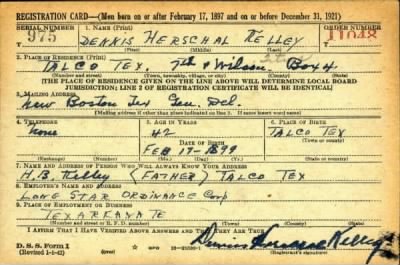 REGISTRATION CARD—(Men born on or after February 17, 1897 and on or before December 31, 1921)
SERIAL NUMBER 1. NAME (Print) ORDER NUMBER
U 975 DENNIS HERSCHAL KELLEY 11048
(First) (Middle) (Last)
2. PLACE OF RESIDENCE (Print)
TALCO TEX, 7th & Wilson, Box 4
(Number and street) (Town, township, village, or city) (County) (State)
[THE PLACE OF RESIDENCE GIVEN ON THE LINE ABOVE WILL DETERMINE LOCAL BOARD
JURISDICTION; LINE 2 OF REGISTRATION CERTIFICATE WILL BE IDENTICAL]
3. MAILING ADDRESS
New Boston Tex Gen. Del.
[Mailing address if other than place indicated on line 2. If same insert word same]
4. TELEPHONE 5. AGE IN YEARS 6. PLACE OF BIRTH
None 42 TALCO TEX
DATE OF BIRTH
FEB 17-1899
(Exchange) (Number) (Mo.) (Day) (Yr.) (Town or county) (State or country)
7. NAME AND ADDRESS OF PERSON WHO WILL ALWAYS KNOW YOUR ADDRESS
H.B. Kelley (FATHER) TALCO TEX
8. EMPLOYER'S NAME AND ADDRESS
LONE STAR ORDINANCE Corp
9. PLACE OF EMPLOYMENT OR BUSINESS
TEXARKANA TE
(Number and street or R. F. D. number) (Town) (County) (State)
I AFFIRM THAT I HAVE VERIFIED ABOVE ANSWERS AND THAT THEY ARE TRUE.
D. S. S. Form 1
(Revised 1-1-42) (over) Dennis Herschal Kelley